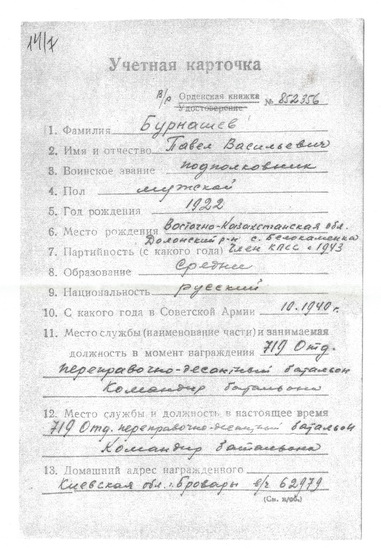 14/7
Учетная карточка
в/р Орденская книжка № 852356
Удостоверение
1. Фамилия Бурнашев
2. Имя и отчество Павел Васильевич
3. Воинское звание подполковник
4. Пол мужской
5. Год рождения 1922
6. Место рождения Восточно-Казахстанская обл.
р-н с. Белокаменка
7. Партийность (с какого года) член КПСС с 1943
8. Образование среднее
9. Национальность русский
10. С какого года в Советской Армии 10.1940 г.
11. Место службы (наименование части) и занимаемая
должность в момент награждения 719 Отд.
переправочно-десантный батальон
Командир батальона
12. Место службы и должность в настоящее время
719 Отд. переправочно-десантный батальон
Командир батальона
13. Домашний адрес награжденного
Киевская обл. г. Бровары в/ч 62979
(См. н/об.)